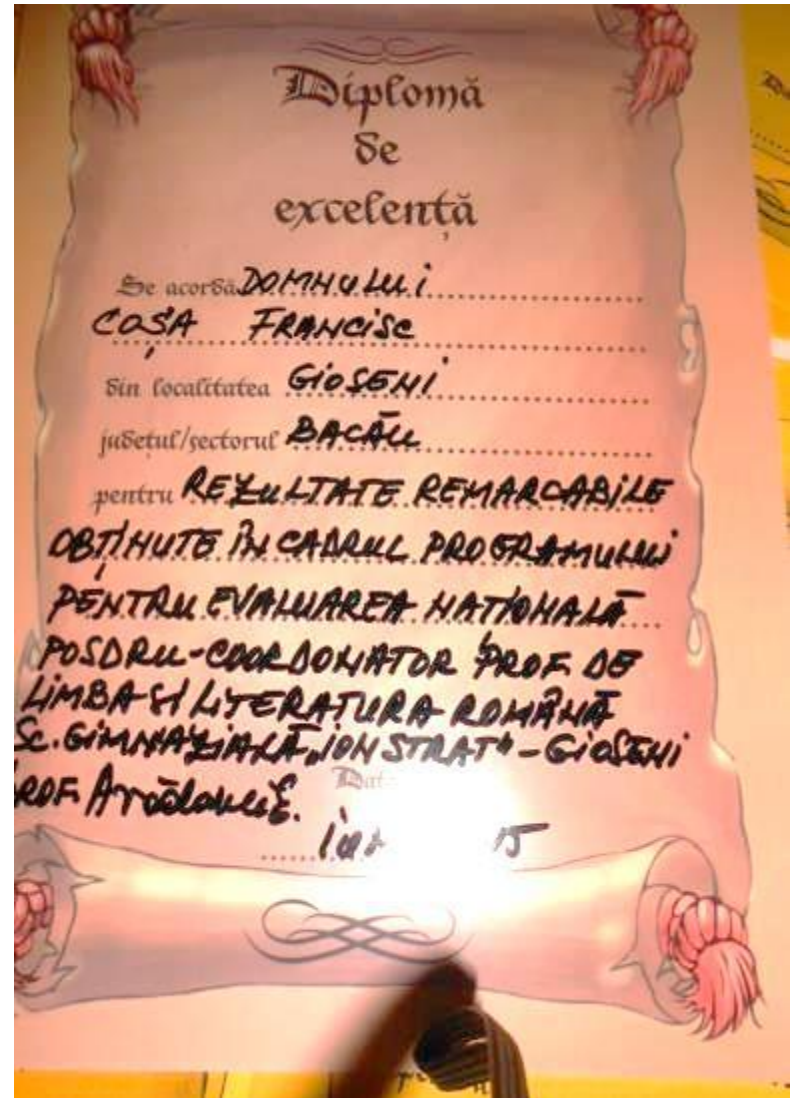 Diplomă
de
excelență
Se acordă DOMNULUI
COȘA FRANCISC
din localitatea GIOSENI
județul/sectorul BACĂU
pentru REZULTATE REMARCABILE
OBȚINUTE ÎN CADRUL PROGRAMULUI
PENTRU EVALUAREA NATIONALĂ
POSDRU-COORDONATOR PROF. DE
LIMBA SI LITERATURA ROMÂNĂ
SC. GIMNAZIALĂ „ION STRAT" - GIOSENI